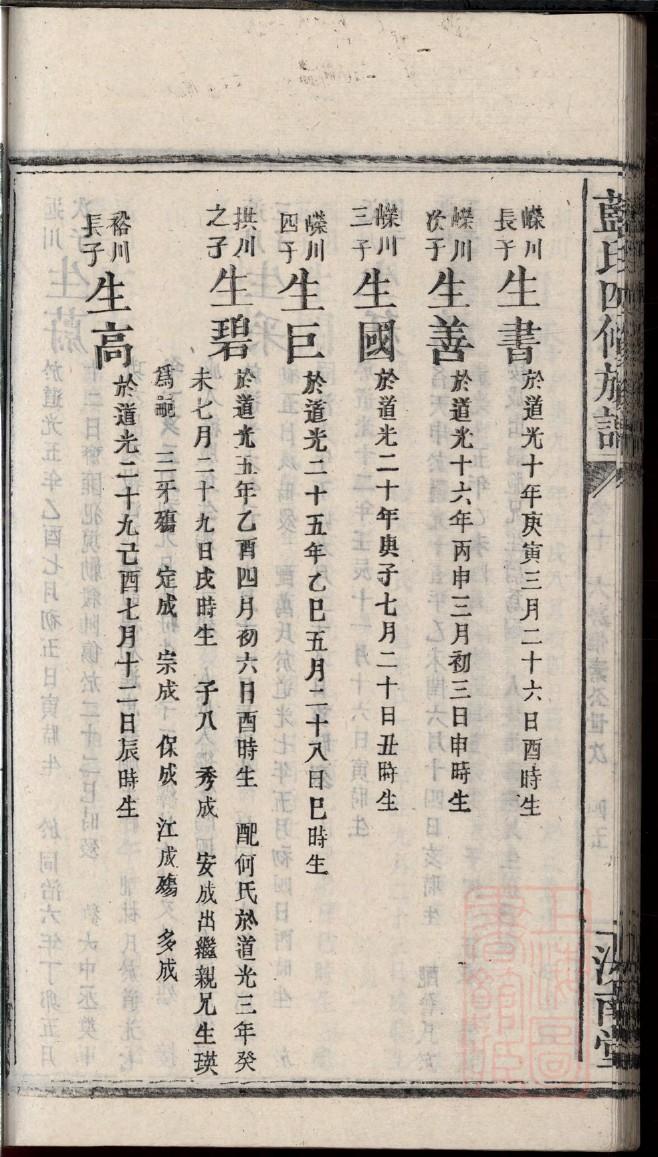 藍氏四修族譜
汝南堂
嶸川長子 生書 於道光十年庚寅三月二十六日酉時生
嶸川次子 生善 於道光十六年丙申三月初三日申時生
嶸川三子 生國 於道光二十年庚子七月二十日丑時生
嶸川四子 生巨 於道光二十五年乙巳五月二十八日巳時生
拱川之子 生碧 於道光五年乙酉四月初六日酉時生 配何氏於道光三年癸
未七月二十九日戌時生 子八 秀成 安成出繼親兄生瑛
爲嗣 三牙殤 定成 崇成 保成 江成殤 多成
裕川長子 生高 於道光二十九己酉七月十二日辰時生